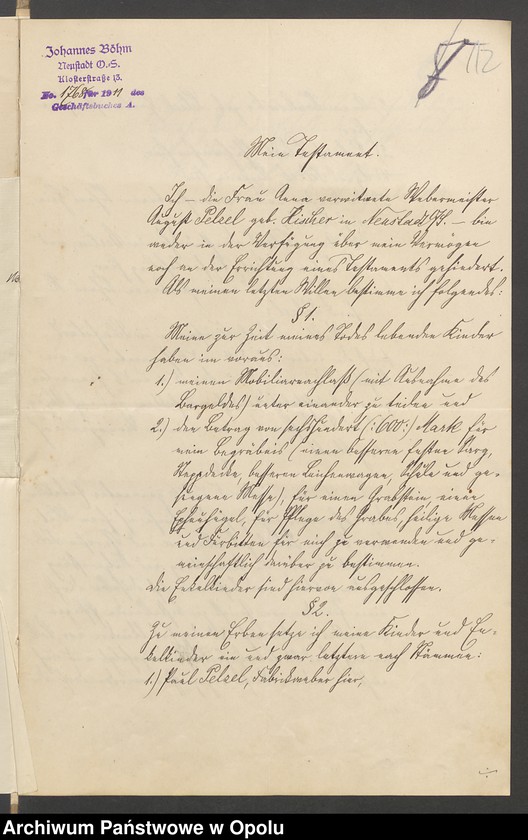 Johannes Böhm
Neustadt O.-S.
Klosterstraße 13.
No. 1768 für 1911 des
Geschäftsbuches A.
8 112
Mein Testament.
Ich – die Frau Anna verwitwete Webermeister
August Pelzel geb. Fischer in Neustadt O/S. – bin
weder in der Verfügung über mein Vermögen
noch an der Errichtung eines Testaments gehindert.
Als meinen letzten Willen bestimme ich folgendes:
§ 1.
Meine zur Zeit meines Todes lebenden Kinder
haben im voraus:
1.) meinen Mobiliarnachlaß (mit Ausnahme des
Bargeldes) unter einander zu teilen und
2.) den Betrag von sechshundert (:600:) Mark für
mein Begräbnis (einen besseren festen Sarg,
Steppdecke, besseren Leichenwagen, Schule und ge-
sungene Messe), für einen Grabstein, einen
Epheuhügel, für Pflege des Grabes, heilige Messen
und Fürbitten für mich zu verwenden und ge-
meinschaftlich darüber zu bestimmen.
Die Enkelkinder sind hiervon ausgeschlossen.
§ 2.
Zu meinen Erben setze ich meine Kinder und En-
kelkinder ein und zwar letztere nach Stämmen:
1.) Paul Pelzel, Fabrikweber hier,
Archiwum Państwowe w Opolu